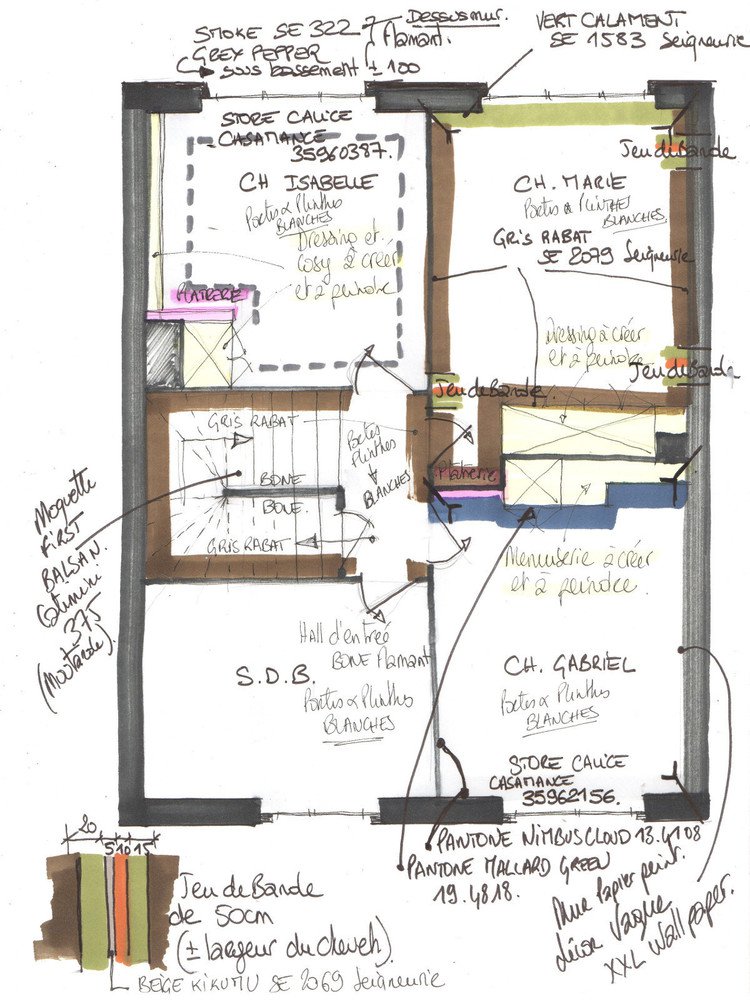 SMOKE SE 322
GREY PEPPER
sous bassement ± 100
Dessus mur.
Flamant.
VERT CALAMENT
SE 1583 Seigneurie
STORE CALICE
CASAMANCE
35960387.
CH ISABELLE
Portes & Plinthes
BLANCHES
Dressing et
cosy à créer
et à peindre
PLATRERIE
Jeu de Bande
CH. MARIE
Portes & PLINTHES
BLANCHES
GRIS RABAT
SE 2079 Seigneurie
Dressing à créer
et à peindre
Jeu de Bande
Jeu de Bande
GRIS RABAT
BONE
BONE
GRIS RABAT
Portes
Plinthes
BLANCHES
Moquette
FIRST
BALSAN.
375
(Moutarde).
Platrerie
Menuiserie à créer
et à peindre
Hall d'entreé
BONE Flamant
S.D.B.
Portes & Plinthes
BLANCHES
CH. GABRIEL
Portes & Plinthes
BLANCHES
STORE CALICE
CASAMANCE
35962156.
PANTONE NIMBUS CLOUD 13.4108
PANTONE MALLARD GREEN
19.4818.
Mur Papier peint.
décor Vague
XXL Wall paper.
20
5 10 15
Jeu de Bande
de 50cm
(± largeur du chevet).
BEIGE KIKUMU SE 2069 Seigneurie